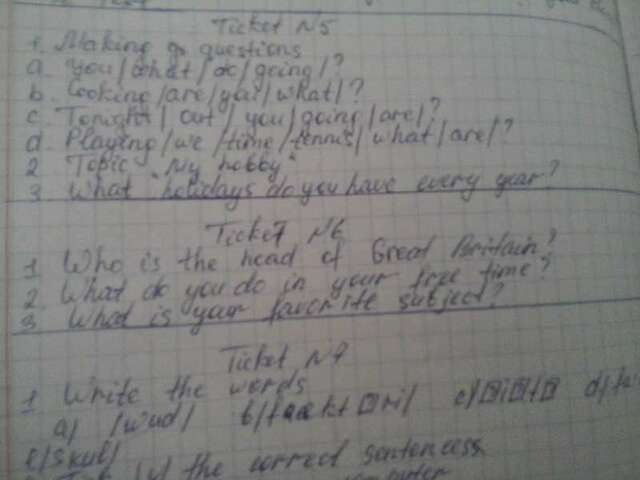 Ticket N5
1. Making questions
a you/what/do/going/?
b Cooking/are/you/what/?
c Tonight/out/you/going/are/?
d Playing/we/time/tennis/what/are/?
2 Topic "My hobby".
3 What holidays do you have every year?
Ticket N6
1 Who is the head of Great Britain?
2 What do you do in your free time?
3 What is your favorite subject?
Ticket N7
1 Write the words
a)
the correct sentences